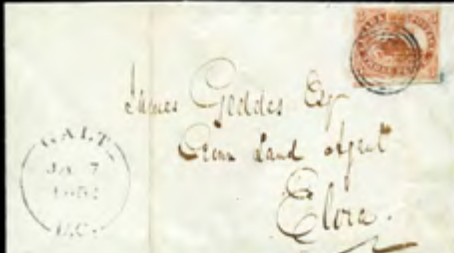 James Geddes Esq
Crown Land Agent
Elora.
GALT
JA 7
U.C.